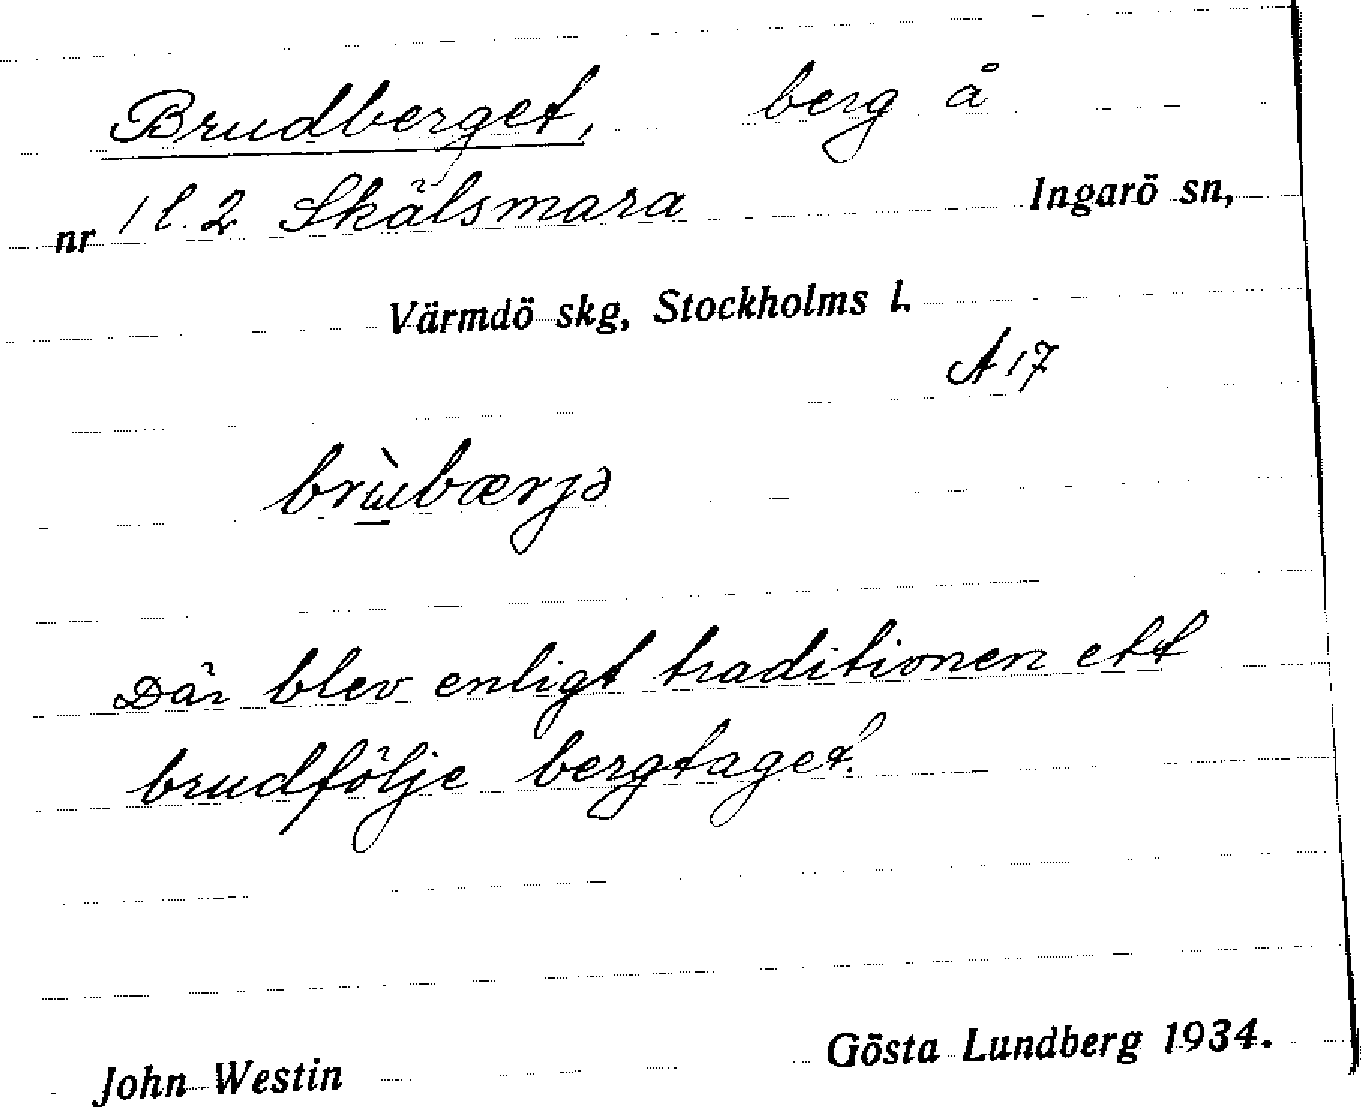 Brudberget, berg å
nr 1 l. 2 Skälsmara Ingarö sn,
Värmdö skg, Stockholms l.
A 17
brɯ̀bærjə
Där blev enligt traditionen ett
brudfölje bergtaget.
John Westin Gösta Lundberg 1934.